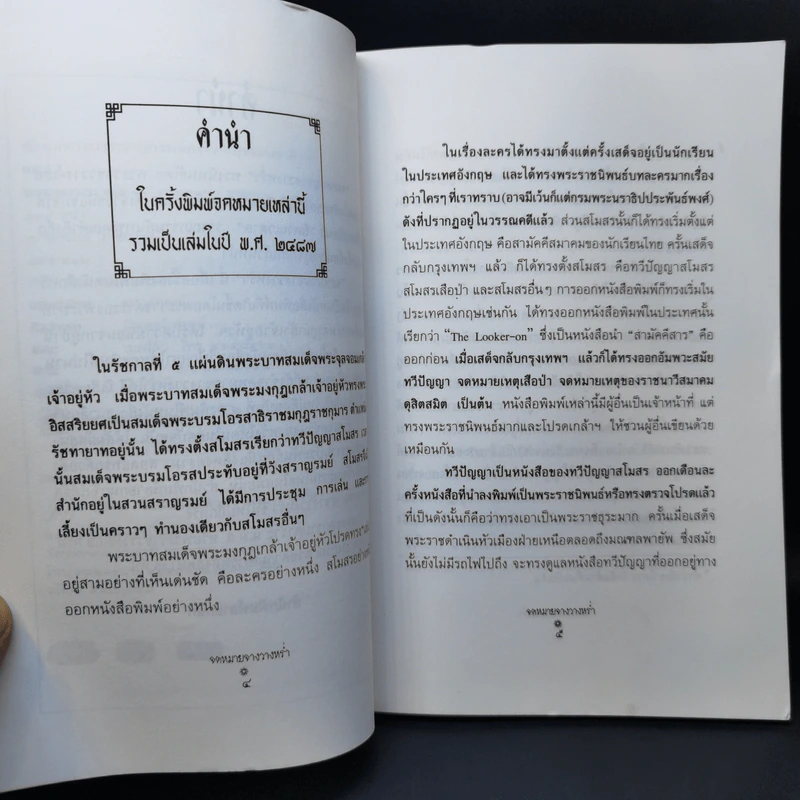 คำนำ
ในครั้งพิมพ์จดหมายเหล่านี้
รวมเป็นเล่มในปี พ.ศ. ๒๔๘๗
ในรัชกาลที่ ๕ แผ่นดินพระบาทสมเด็จพระจุลจอมเกล้
เจ้าอยู่หัว เมื่อพระบาทสมเด็จพระมงกุฎเกล้าเจ้าอยู่หัวทรงพระ
อิสสริยยศเป็นสมเด็จพระบรมโอรสาธิราชมกุฎราชกุมาร ตำแห
รัชทายาทอยู่นั้น ได้ทรงตั้งสโมสรเรียกว่าทวีปัญญาสโมสร
นั้นสมเด็จพระบรมโอรสประทับอยู่ที่วังสราญรมย์ สโมสรนั้
สำนักอยู่ในสวนสราญรมย์ ได้มีการประชุม การเล่น และ
เลี้ยงเป็นคราวๆ ทำนองเดียวกับสโมสรอื่นๆ
พระบาทสมเด็จพระมงกุฎเกล้าเจ้าอยู่หัวโปรดทรง
อยู่สามอย่างที่เห็นเด่นชัด คือละครอย่างหนึ่ง สโมสรอย่างห
ออกหนังสือพิมพ์อย่างหนึ่ง
จดหมายจางวางหร่ำ
๔
ในเรื่องละครได้ทรงมาตั้งแต่ครั้งเสด็จอยู่เป็นนักเรียน
ในประเทศอังกฤษ และได้ทรงพระราชนิพนธ์บทละครมากเรื่อง
กว่าใครๆ ที่เราทราบ (อาจมีเว้นก็แต่กรมพระนราธิปประพันธ์พงศ์)
ดังที่ปรากฏอยู่ในวรรณคดีแล้ว ส่วนสโมสรนั้นก็ได้ทรงเริ่มตั้งแต่
ในประเทศอังกฤษ คือสามัคคีสมาคมของนักเรียนไทย ครั้นเสด็จ
กลับกรุงเทพฯ แล้ว ก็ได้ทรงตั้งสโมสร คือทวีปัญญาสโมสร
สโมสรเสือป่า และสโมสรอื่นๆ การออกหนังสือพิมพ์ก็ทรงเริ่มใน
ประเทศอังกฤษเช่นกัน ได้ทรงออกหนังสือพิมพ์ในประเทศนั้น
เรียกว่า “The Looker-on” ซึ่งเป็นหนังสือนำ “สามัคคีสาร” คือ
ออกก่อน เมื่อเสด็จกลับกรุงเทพฯ แล้วก็ได้ทรงออกอัมพวะสมัย
ทวีปัญญา จดหมายเหตุเสือป่า จดหมายเหตุของราชนาวีสมาคม
ดุสิตสมิต เป็นต้น หนังสือพิมพ์เหล่านี้มีผู้อื่นเป็นเจ้าหน้าที่ แต่
ทรงพระราชนิพนธ์มากและโปรดเกล้าฯ ให้ชวนผู้อื่นเขียนด้วย
เหมือนกัน
ทวีปัญญาเป็นหนังสือของทวีปัญญาสโมสร ออกเดือนละ
ครั้งหนังสือที่นำลงพิมพ์เป็นพระราชนิพนธ์หรือทรงตรวจโปรดแล้ว
ที่เป็นดังนั้นก็คือว่าทรงเอาเป็นพระราชธุระมาก ครั้นเมื่อเสด็จ
พระราชดำเนินหัวเมืองฝ่ายเหนือตลอดถึงมณฑลพายัพ ซึ่งสมัย
นั้นยังไม่มีรถไฟไปถึง จะทรงดูแลหนังสือทวีปัญญาที่ออกอยู่ทาง
จดหมายจางวางหร่ำ
๕